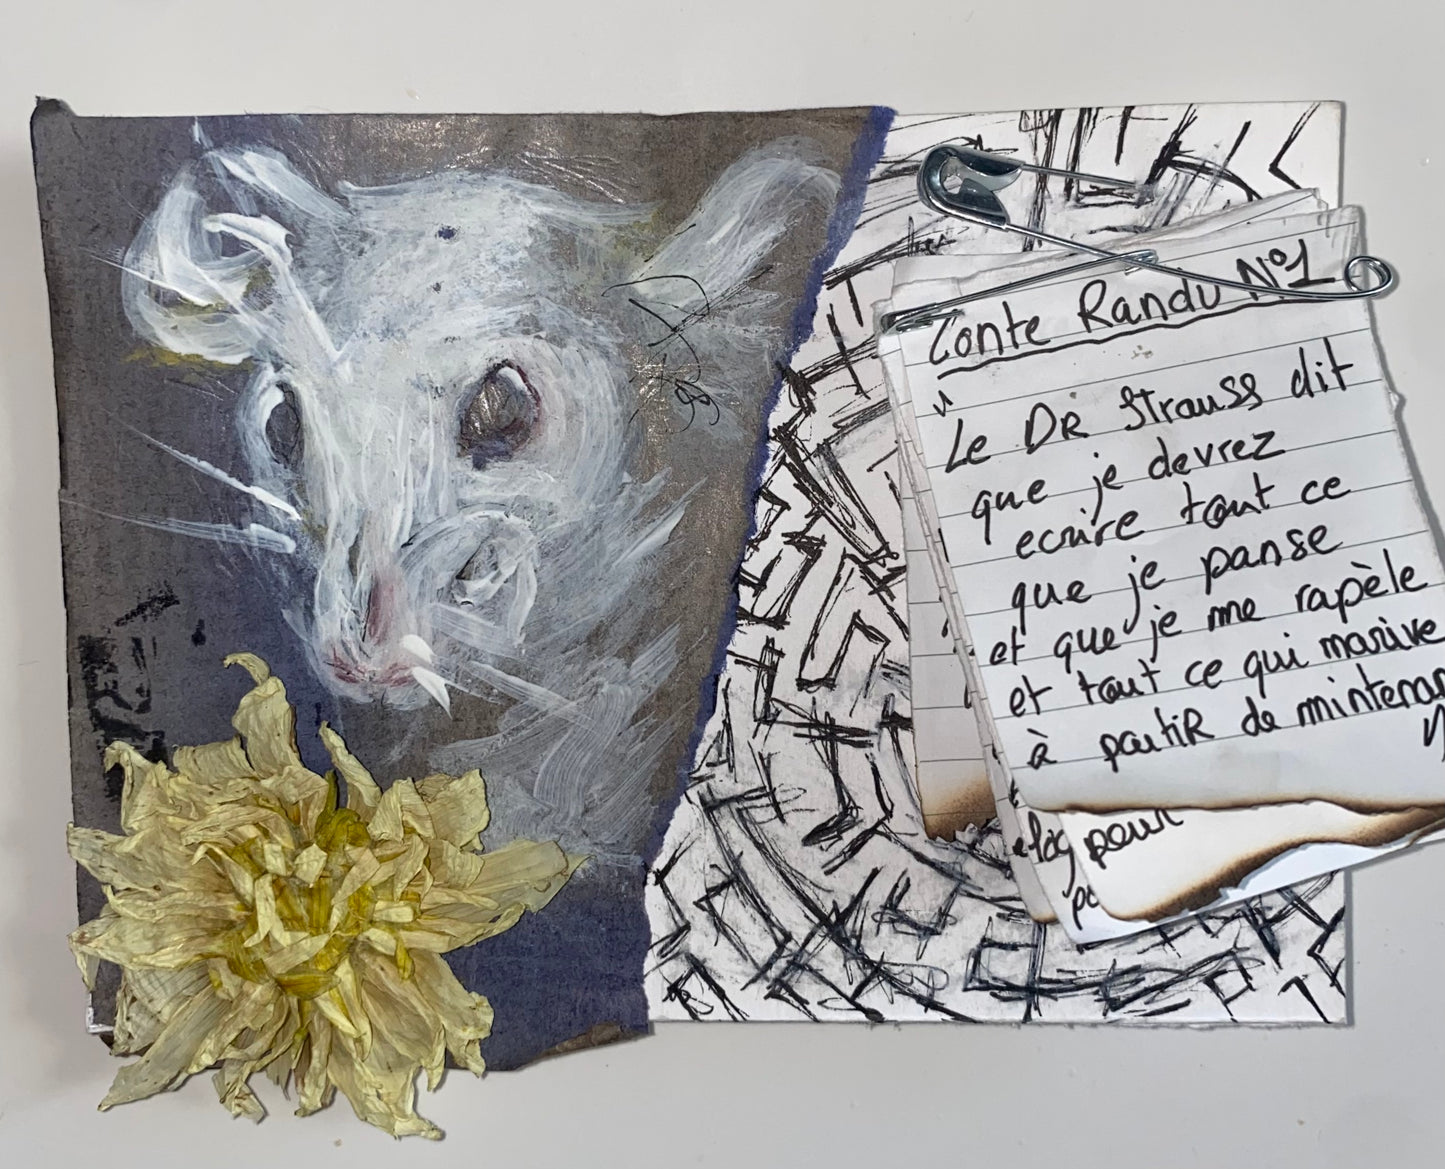 Conte Randu N°1
" Le DR Strauss dit
que je devrez
ecrire tout ce
que je panse
et que je me rapèle
et tout ce qui marive
à partiR de mintenan
pour